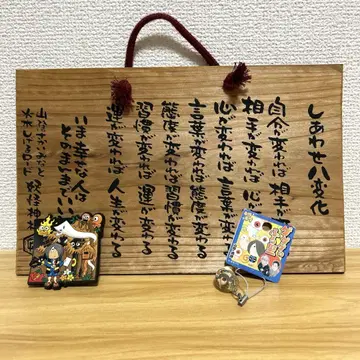 しあわせ八変化
自分が変われば 相手が
相手が変われば 心
心が変われば 言葉が変わる
言葉が変われば 態度が変わる
態度が変われば 習慣が変わる
習慣が変われば 運が変わる
運が変われば 人生が変わる
いま幸せな人は
そのまま
妖怪神社
水木しげるロード